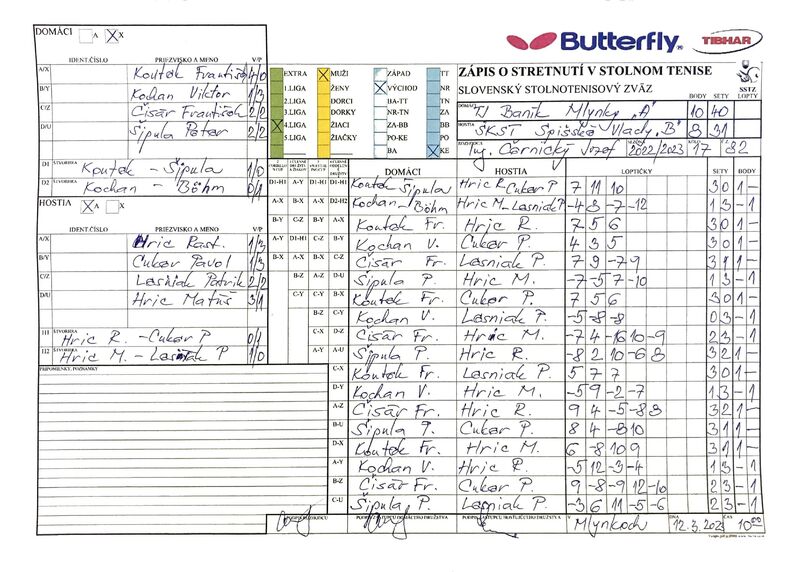 DOMÁCI A X
IDENT.ČÍSLO PRIEZVISKO A MENO V/P
A/X Koutek František 4/0
B/Y Kochan Viktor 1/3
C/Z Čisár František 2/2
D/U Šipula Peter 2/2
D1 ŠTVORHRA Koutek - Šipula 1/0
D2 ŠTVORHRA Kochan - Böhm 0/1
HOSTIA A X
IDENT.ČÍSLO PRIEZVISKO A MENO V/P
A/X Hric Rast. 1/3
B/Y Cukar Pavol 1/3
C/Z Lesniak Patrik 2/2
D/U Hric Matúš 3/1
H1 ŠTVORHRA Hric R. - Cukar P 0/1
H2 ŠTVORHRA Hric M. - Lesniak P 1/0
PRIPOMIENKY, POZNÁMKY
Butterfly
TIBHAR
EXTRA MUŽI ZÁPAD TT
1.LIGA ŽENY VÝCHOD NR
2.LIGA DORCI BA-TT TN
3.LIGA DORKY NR-TN ZA
4.LIGA ŽIACI ZA-BB BB
5.LIGA ŽIAČKY PO-KE PO
BA KE
ZÁPIS O STRETNUTÍ V STOLNOM TENISE
SLOVENSKÝ STOLNOTENISOVÝ ZVÄZ
SSTZ
BODY SETY LOPTY
DOMÁCI TJ Baník Mlynky "A" 10 40
HOSTIA ŠKST Spišské Vlachy "B" 8 31
Ing. Černický Jozef SEZÓNA 2022/2023 KOLO 17
DOMÁCI HOSTIA LOPTIČKY SETY BODY
Koutek Šipula Hric R. Cukar P 7 11 10 3 0 1 -
Kochan - Böhm Hric M. Lesniak P. -4 8 -7 -12 1 3 - 1
Koutek Fr. Hric R. 7 5 6 3 0 1 -
Kochan V. Cukar P. 4 3 5 3 0 1 -
Čisár Fr. Lesniak P. 7 9 -7 9 3 1 1 -
Šipula P. Hric M. -7 -5 7 -10 1 3 - 1
Koutek Fr. Cukar P. 7 5 6 3 0 1 -
Kochan V. Lesniak P. -5 -8 -8 0 3 - 1
Čisár Fr. Hric M. -7 4 -16 10 -9 2 3 - 1
Šipula P. Hric R. -8 2 10 -6 8 3 2 1 -
Koutek Fr. Lesniak P. 5 7 7 3 0 1 -
Kochan V. Hric M. -5 9 -2 -7 1 3 - 1
Čisár Fr. Hric R. 9 4 -5 -8 3 3 2 1 -
Šipula P. Cukar P. 8 4 -8 10 3 1 1 -
Koutek Fr. Hric M. 6 -8 10 9 3 1 1 -
Kochan V. Hric R. -5 12 -3 -4 1 3 - 1
Čisár Fr. Cukar P. 9 -8 -9 12 -10 2 3 - 1
Šipula P. Lesniak P. -3 6 11 -5 -6 2 3 - 1
V Mlynkoch DŇA 12.3.2023 ČAS 10⁰⁰